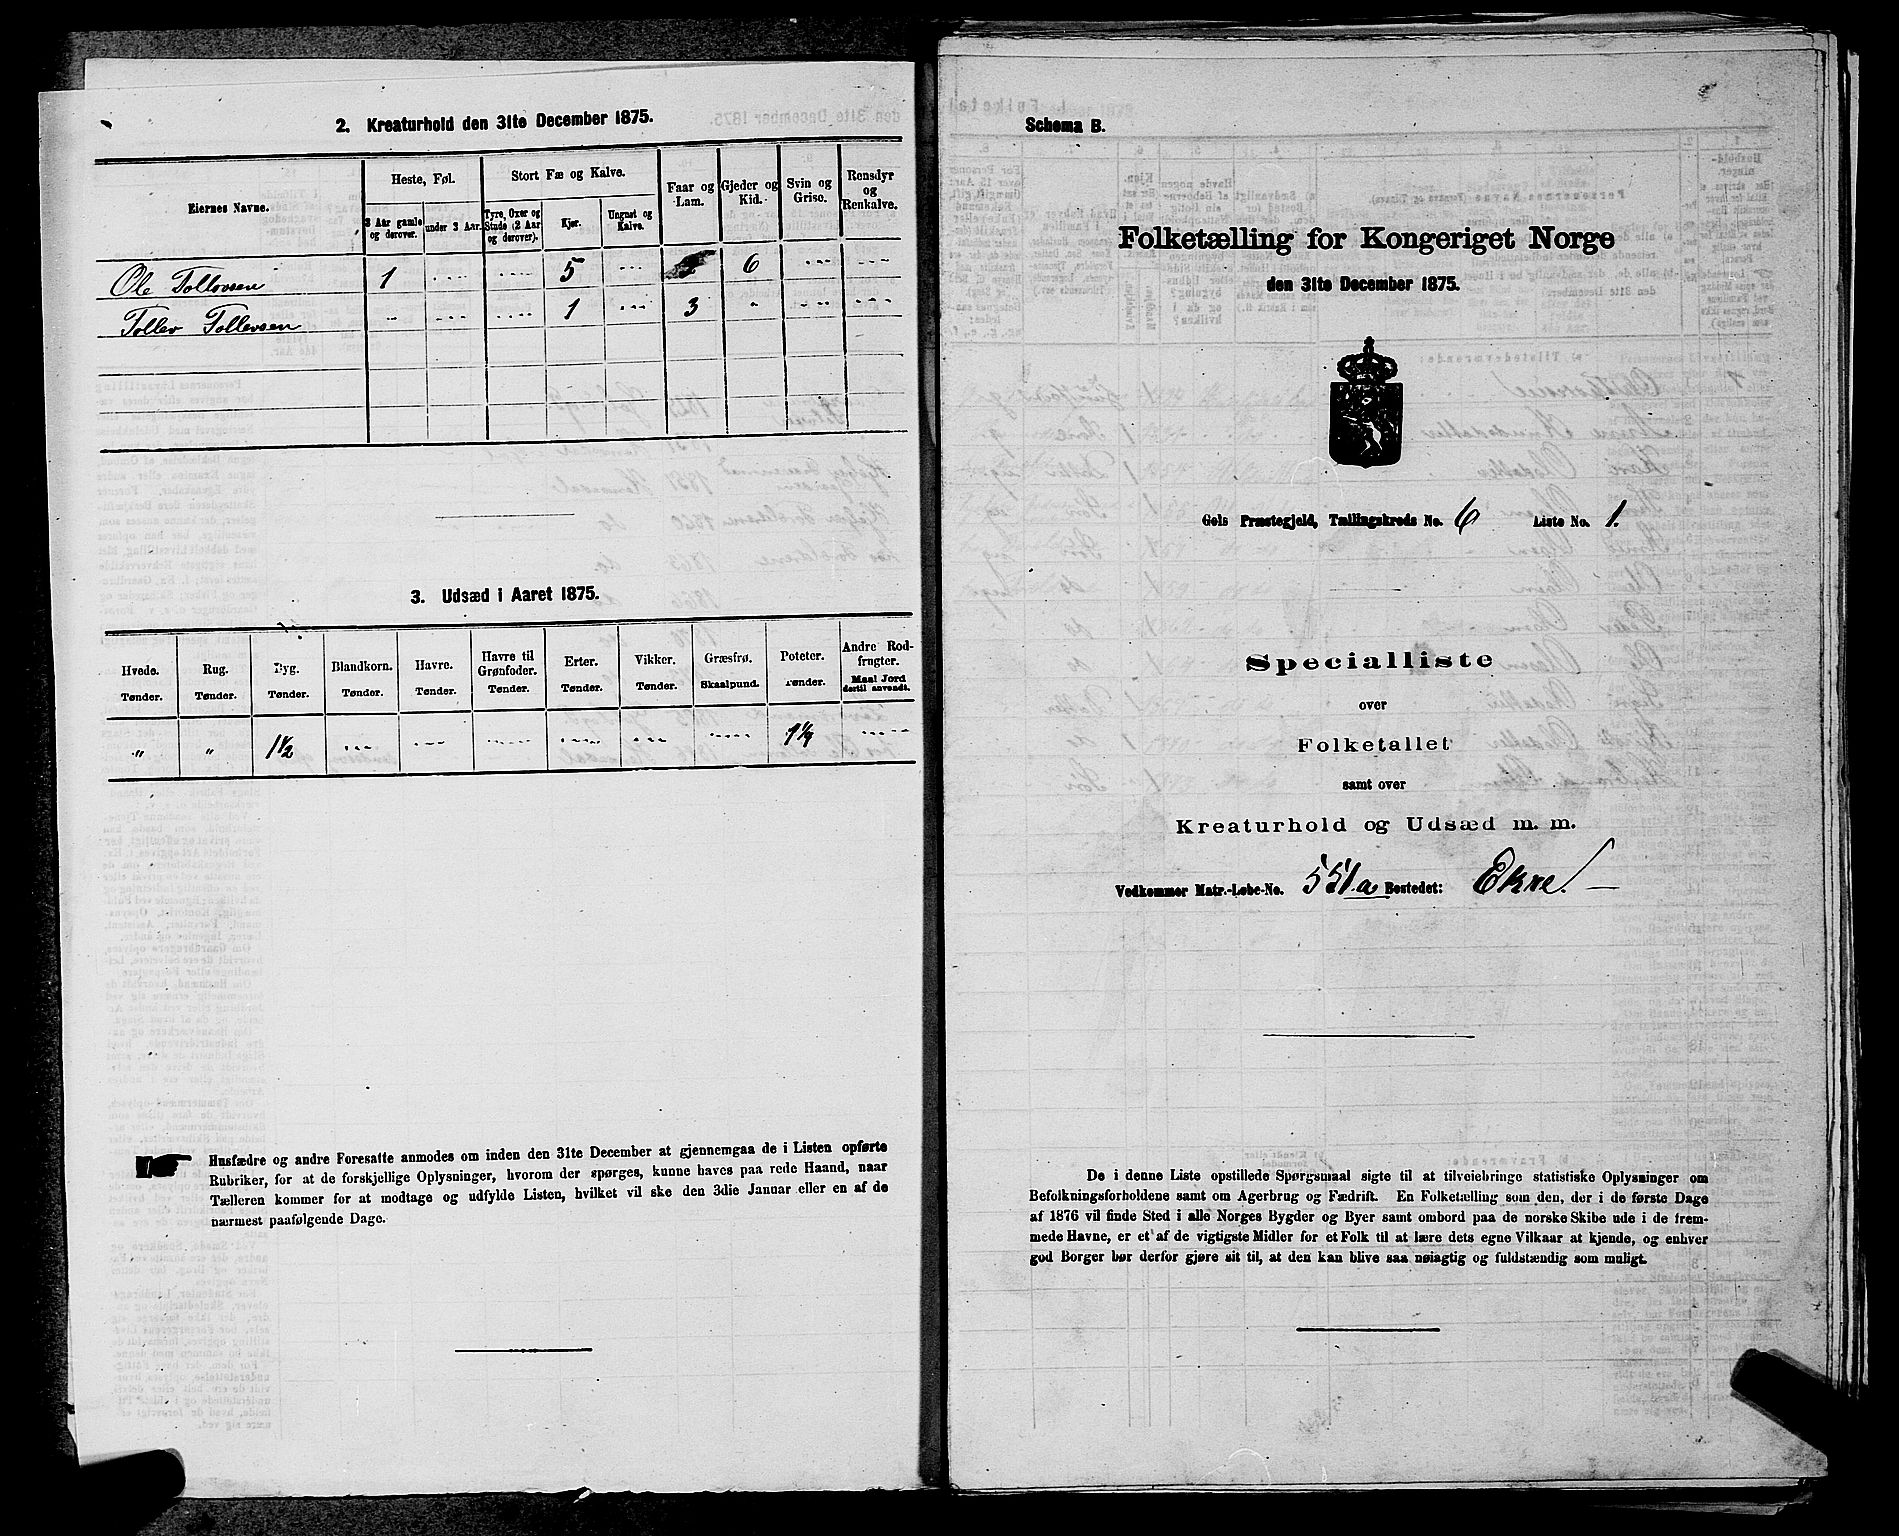 2. Kreaturhold den 31te December 1875.
Eiernes Navne.
Heste, Føl.
Stort Fæ og Kalve.
Faar og Lam.
Gjeder og Kid.
Svin og Grise.
Rensdyr og Renkalve.
3 Aar gamle og derover.
under 3 Aar.
Tyre, Oxer og Stude (2 Aar og derover).
Kjør.
Ungnøt og Kalve.
Ole Tollevsen 1 5 6
Tollev Tollevsen 1 3
3. Udsæd i Aaret 1875.
Hvede. Rug. Byg. Blandkorn. Havre. Havre til Grønfoder. Erter. Vikker. Græsfrø. Poteter. Andre Rodfrugter.
Tønder. Tønder. Tønder. Tønder. Tønder. Tønder. Tønder. Tønder. Skaalpund. Tønder. Maal Jord dertil anvendt.
" " 1½
Husfædre og andre Foresatte anmodes om inden den 31te December at gjennemgaa de i Listen opførte
Rubriker, for at de forskjellige Oplysninger, hvorom der spørges, kunne haves paa rede Haand, naar
Tælleren kommer for at modtage og udfylde Listen, hvilket vil ske den 3die Januar eller en af de
nærmest paafølgende Dage.
Schema B.
Folketælling for Kongeriget Norge
den 31te December 1875.
Gols Præstegjeld, Tællingskreds No. 6 Liste No. 1.
Specialliste
over
Folketallet
samt over
Kreaturhold og Udsæd m. m.
Vedkommer Matr.-Løbe-No. 551.a Bostedet: Ekre.
De i denne Liste opstillede Spørgsmaal sigte til at tilveiebringe statistiske Oplysninger om
Befolkningsforholdene samt om Agerbrug og Fædrift. En Folketælling som den, der i de første Dage
af 1876 vil finde Sted i alle Norges Bygder og Byer samt ombord paa de norske Skibe ude i de frem-
mede Havne, er et af de vigtigste Midler for et Folk til at lære dets egne Vilkaar at kjende, og enhver
god Borger bør derfor gjøre sit til, at den kan blive saa nøiagtig og fuldstændig som muligt.